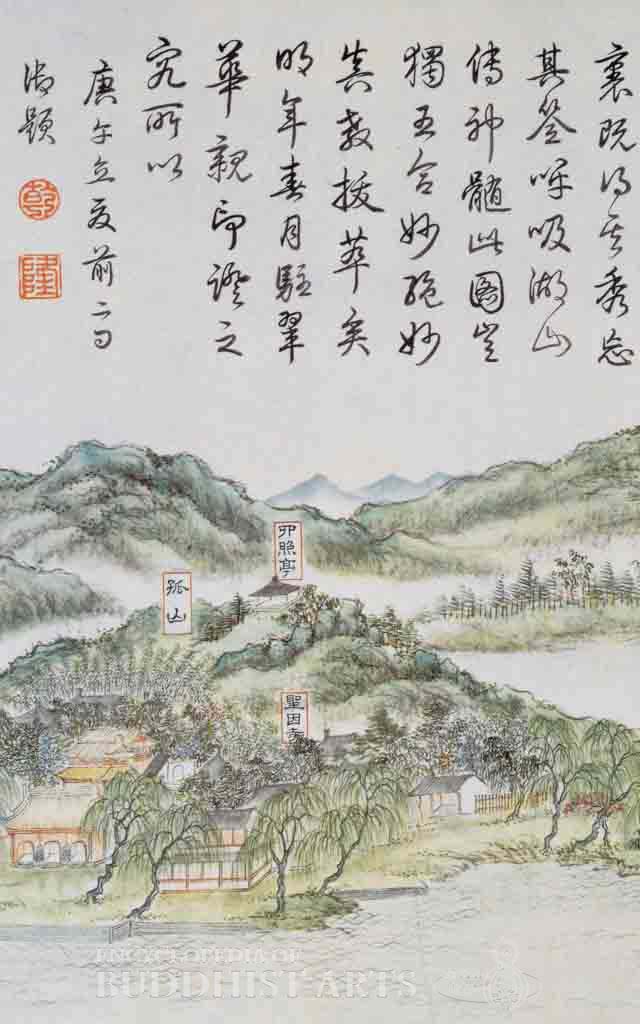 裏既得其秀忘
其筌呼吸湖山
傳神髓此圖豈
獨五合妙絕妙
真教拔萃矣
明年春月駐翠
華親印證之
究所以
庚午立夏前二日
御題
乾
隆
四照亭
孤山
聖因寺
ENCYCLOPEDIA OF
BUDDHIST ARTS